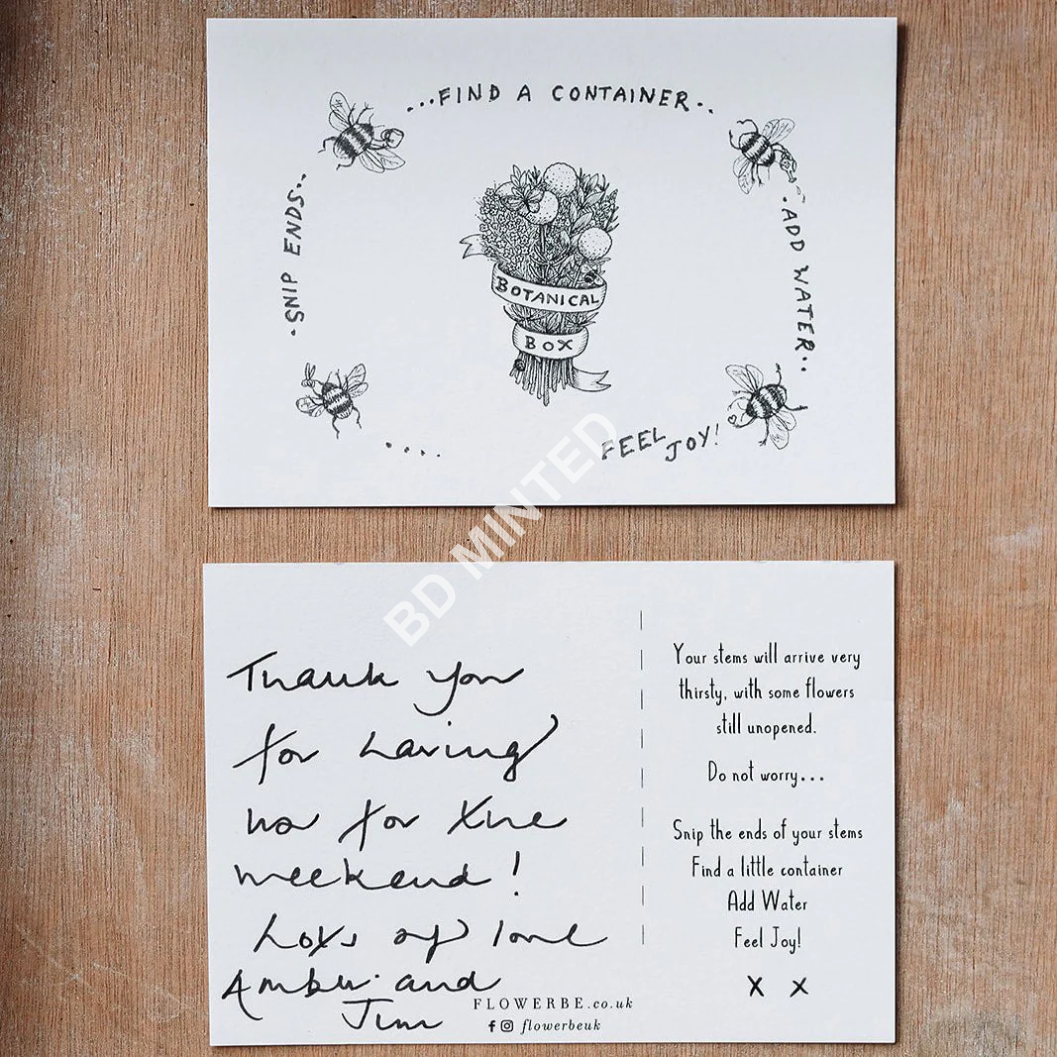 ...FIND A CONTAINER..
.SNIP ENDS..
.ADD WATER..
BOTANICAL
BOX
....
FEEL JOY!
BD MINTED
Thank you
for having
us for the
weekend!
Lots of love
Amber and
Jim
Your stems will arrive very
thirsty, with some flowers
still unopened.
Do not worry...
Snip the ends of your stems
Find a little container
Add Water
Feel Joy!
X X
FLOWERBE.co.uk
flowerbeuk